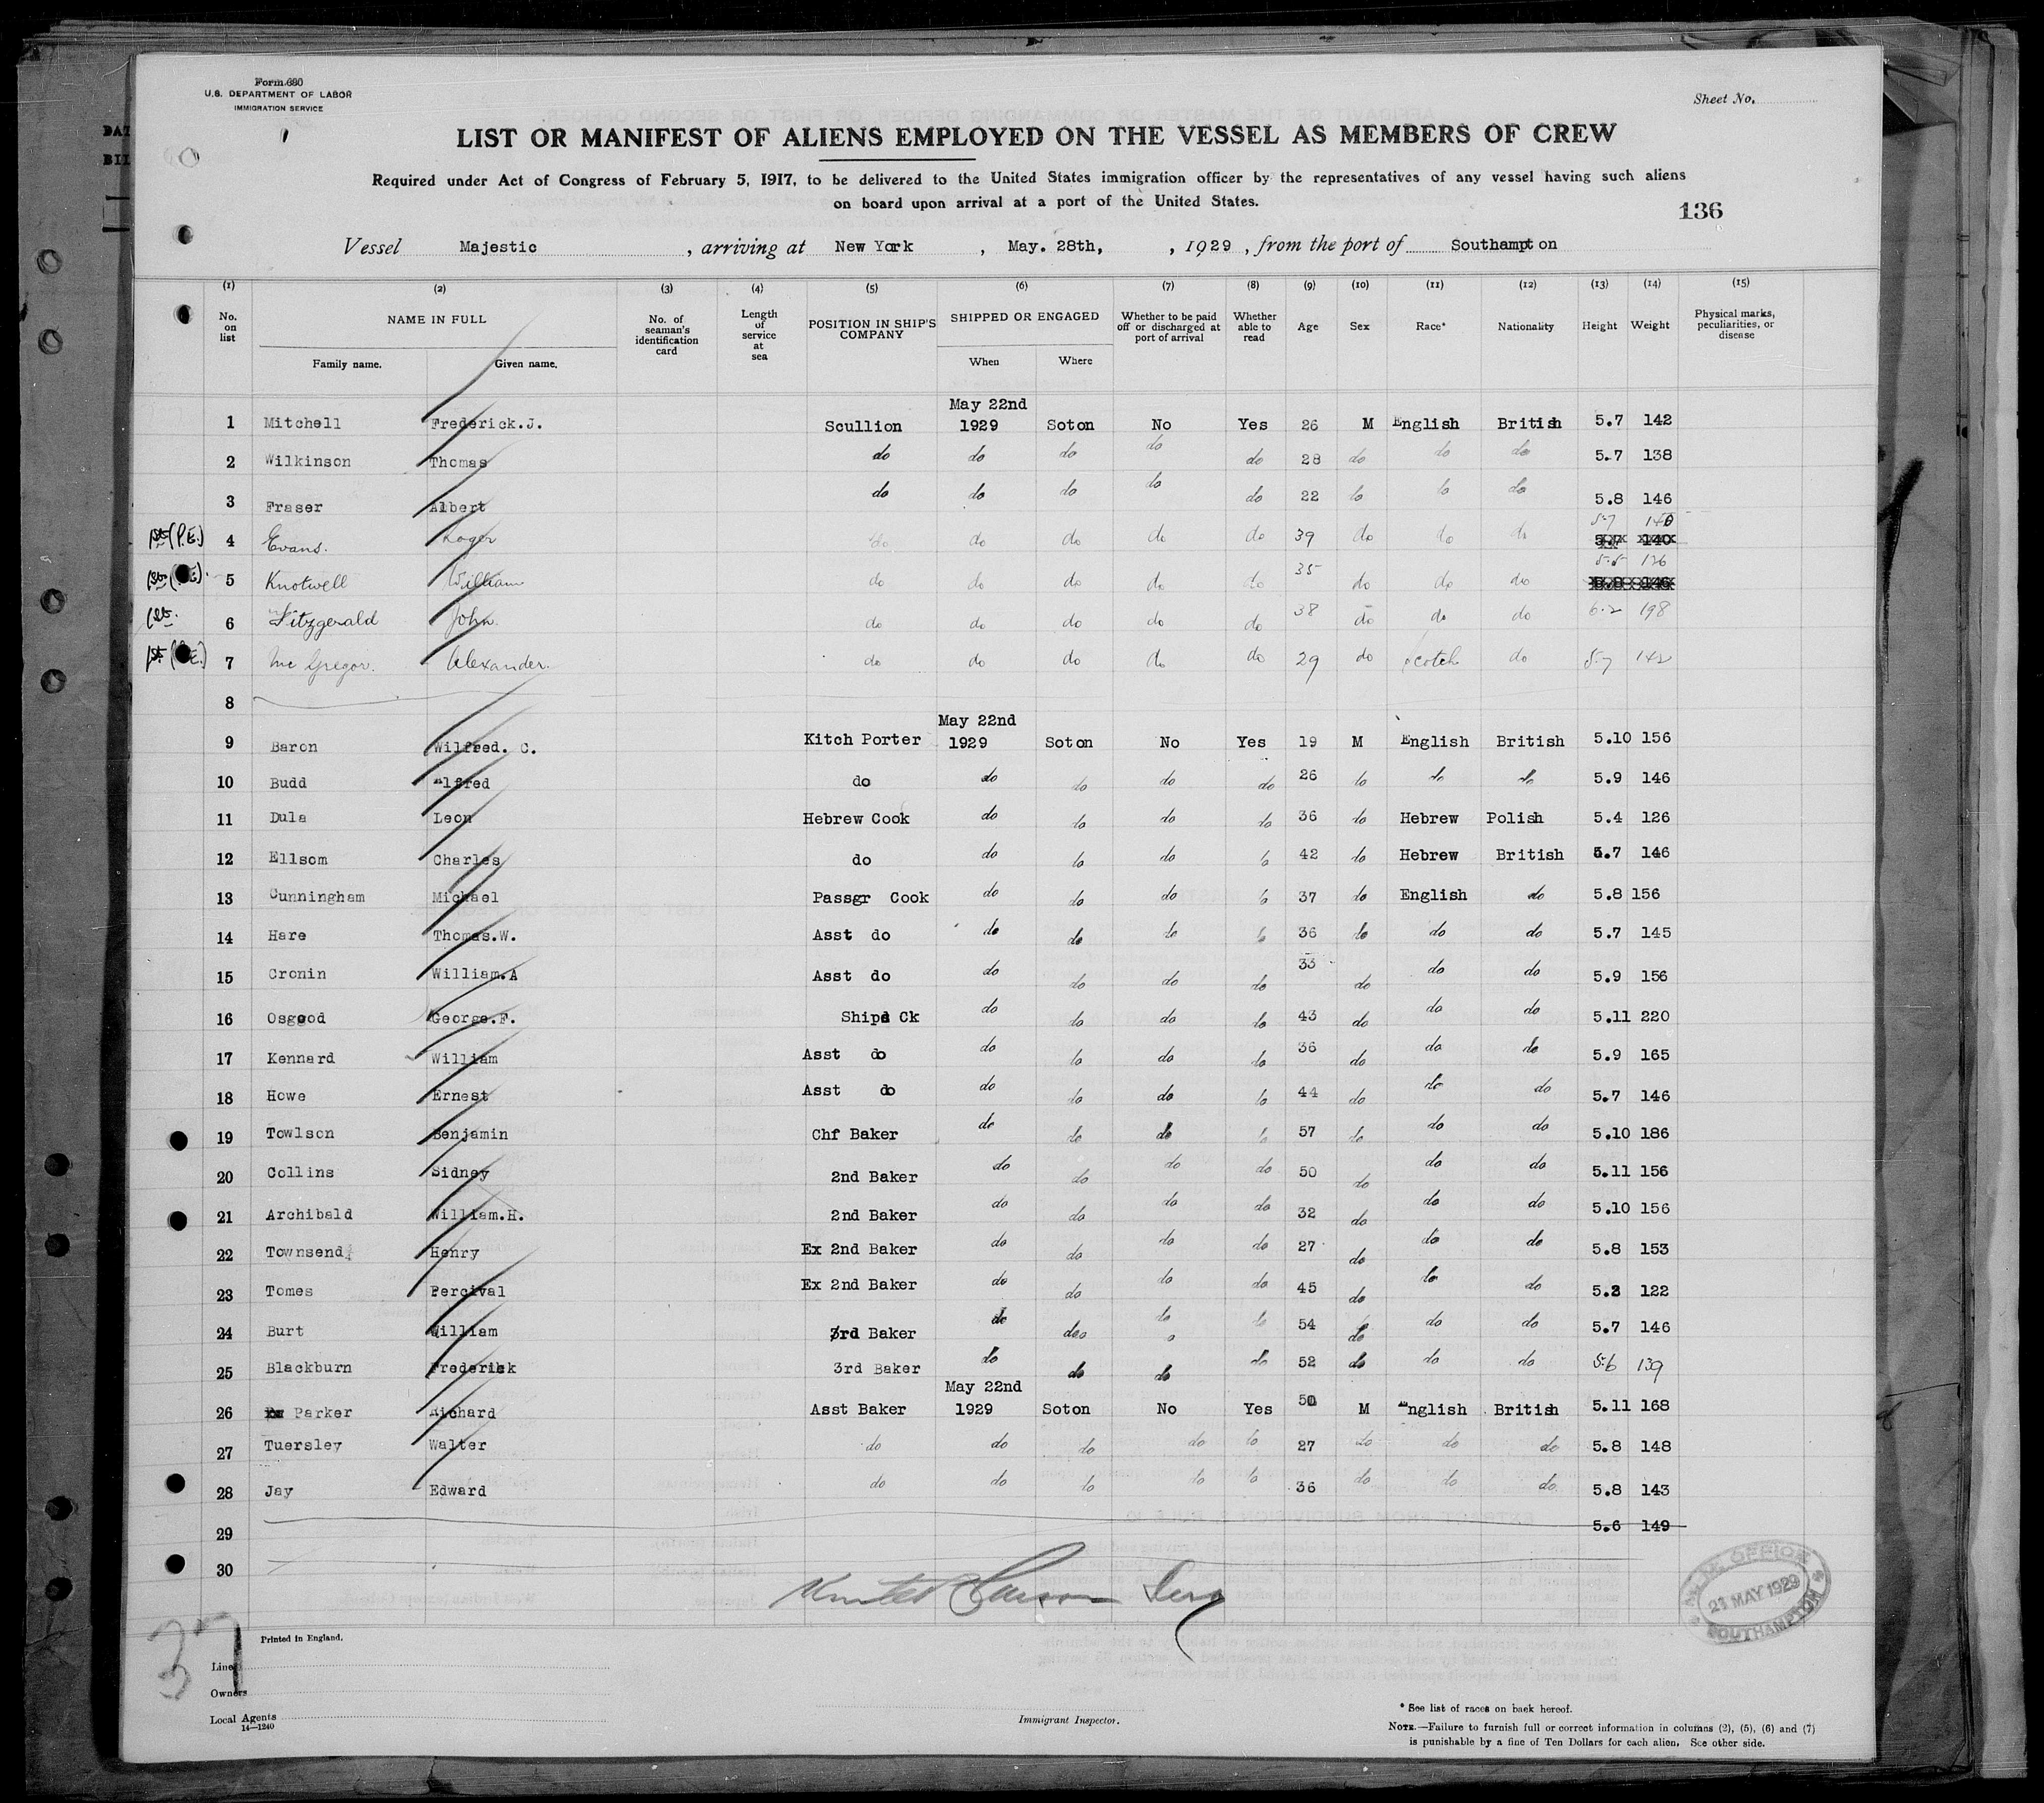 Form 680
U.S. DEPARTMENT OF LABOR
IMMIGRATION SERVICE
Sheet No.
LIST OR MANIFEST OF ALIENS EMPLOYED ON THE VESSEL AS MEMBERS OF CREW
Required under Act of Congress of February 5, 1917, to be delivered to the United States immigration officer by the representatives of any vessel having such aliens
on board upon arrival at a port of the United States.
136
Vessel Majestic, arriving at New York, May. 28th, , 1929, from the port of Southampton
(1) (2) (3) (4) (5) (6) (7) (8) (9) (10) (11) (12) (13) (14) (15)
No. on list NAME IN FULL Family name. Given name. No. of seaman's identification card Length of service at sea POSITION IN SHIP'S COMPANY SHIPPED OR ENGAGED When Where Whether to be paid off or discharged at port of arrival Whether able to read Age Sex Race* Nationality Height Weight Physical marks, peculiarities, or disease
1 Mitchell Frederick.J. Scullion May 22nd 1929 Soton No Yes 26 M English British 5.7 142
2 Wilkinson Thomas do do do do do 28 do do do 5.7 138
3 Fraser Albert do do do do do 22 do do do 5.8 146
1st (P.E.) 4 Evans. Roger do do do do do 39 do do do 5.7 140 5.7 140
5 Knotwell William do do do do do 35 do do do 5.5 136 5.8 146
1st. 6 Fitzgerald John do do do do do 38 do do do 6.2 198
7 Mc Gregor. Alexander. do do do do do 29 do Scotch do 5.7 142
8
9 Baron Wilfred. C. Kitch Porter May 22nd 1929 Soton No Yes 19 M English British 5.10 156
10 Budd Alfred do do do do do 26 do do do 5.9 146
11 Dula Leon Hebrew Cook do do do do 36 do Hebrew Polish 5.4 126
12 Ellsom Charles do do do do do 42 do Hebrew British 5.7 146
13 Cunningham Michael Passgr Cook do do do do 37 do English do 5.8 156
14 Hare Thomas.W. Asst do do do do do 36 do do do 5.7 145
15 Cronin William.A Asst do do do do do 33 do do do 5.9 156
16 Osgood George.F. Ships Ck do do do do 43 do do do 5.11 220
17 Kennard William Asst do do do do do 36 do do do 5.9 165
18 Howe Ernest Asst do do do do do 44 do do do 5.7 146
19 Towlson Benjamin Chf Baker do do do do 57 do do do 5.10 186
20 Collins Sidney 2nd Baker do do do do 50 do do do 5.11 156
21 Archibald William.H. 2nd Baker do do do do 32 do do do 5.10 156
22 Townsend Henry Ex 2nd Baker do do do do 27 do do do 5.8 153
23 Tomes Percival Ex 2nd Baker do do do do 45 do do do 122
24 Burt William 3rd Baker do do do do 54 do do do 5.7 146
25 Blackburn Frederick 3rd Baker do do do do 52 do do do 5.6 139
26 Parker Richard Asst Baker May 22nd 1929 Soton No Yes 50 M English British 5.11 168
27 Tuersley Walter do do do do do 27 do do do 5.8 148
28 Jay Edward do do do do do 36 do do do 5.8 143
29 5.6 149
30
OFFICE
21 MAY 1929
SOUTHAMPTON
37
Printed in England.
Line
Owners
Local Agents
14—1240
Immigrant Inspector.
* See list of races on back hereof.
NOTE.—Failure to furnish full or correct information in columns (2), (5), (6) and (7)
is punishable by a fine of Ten Dollars for each alien. See other side.